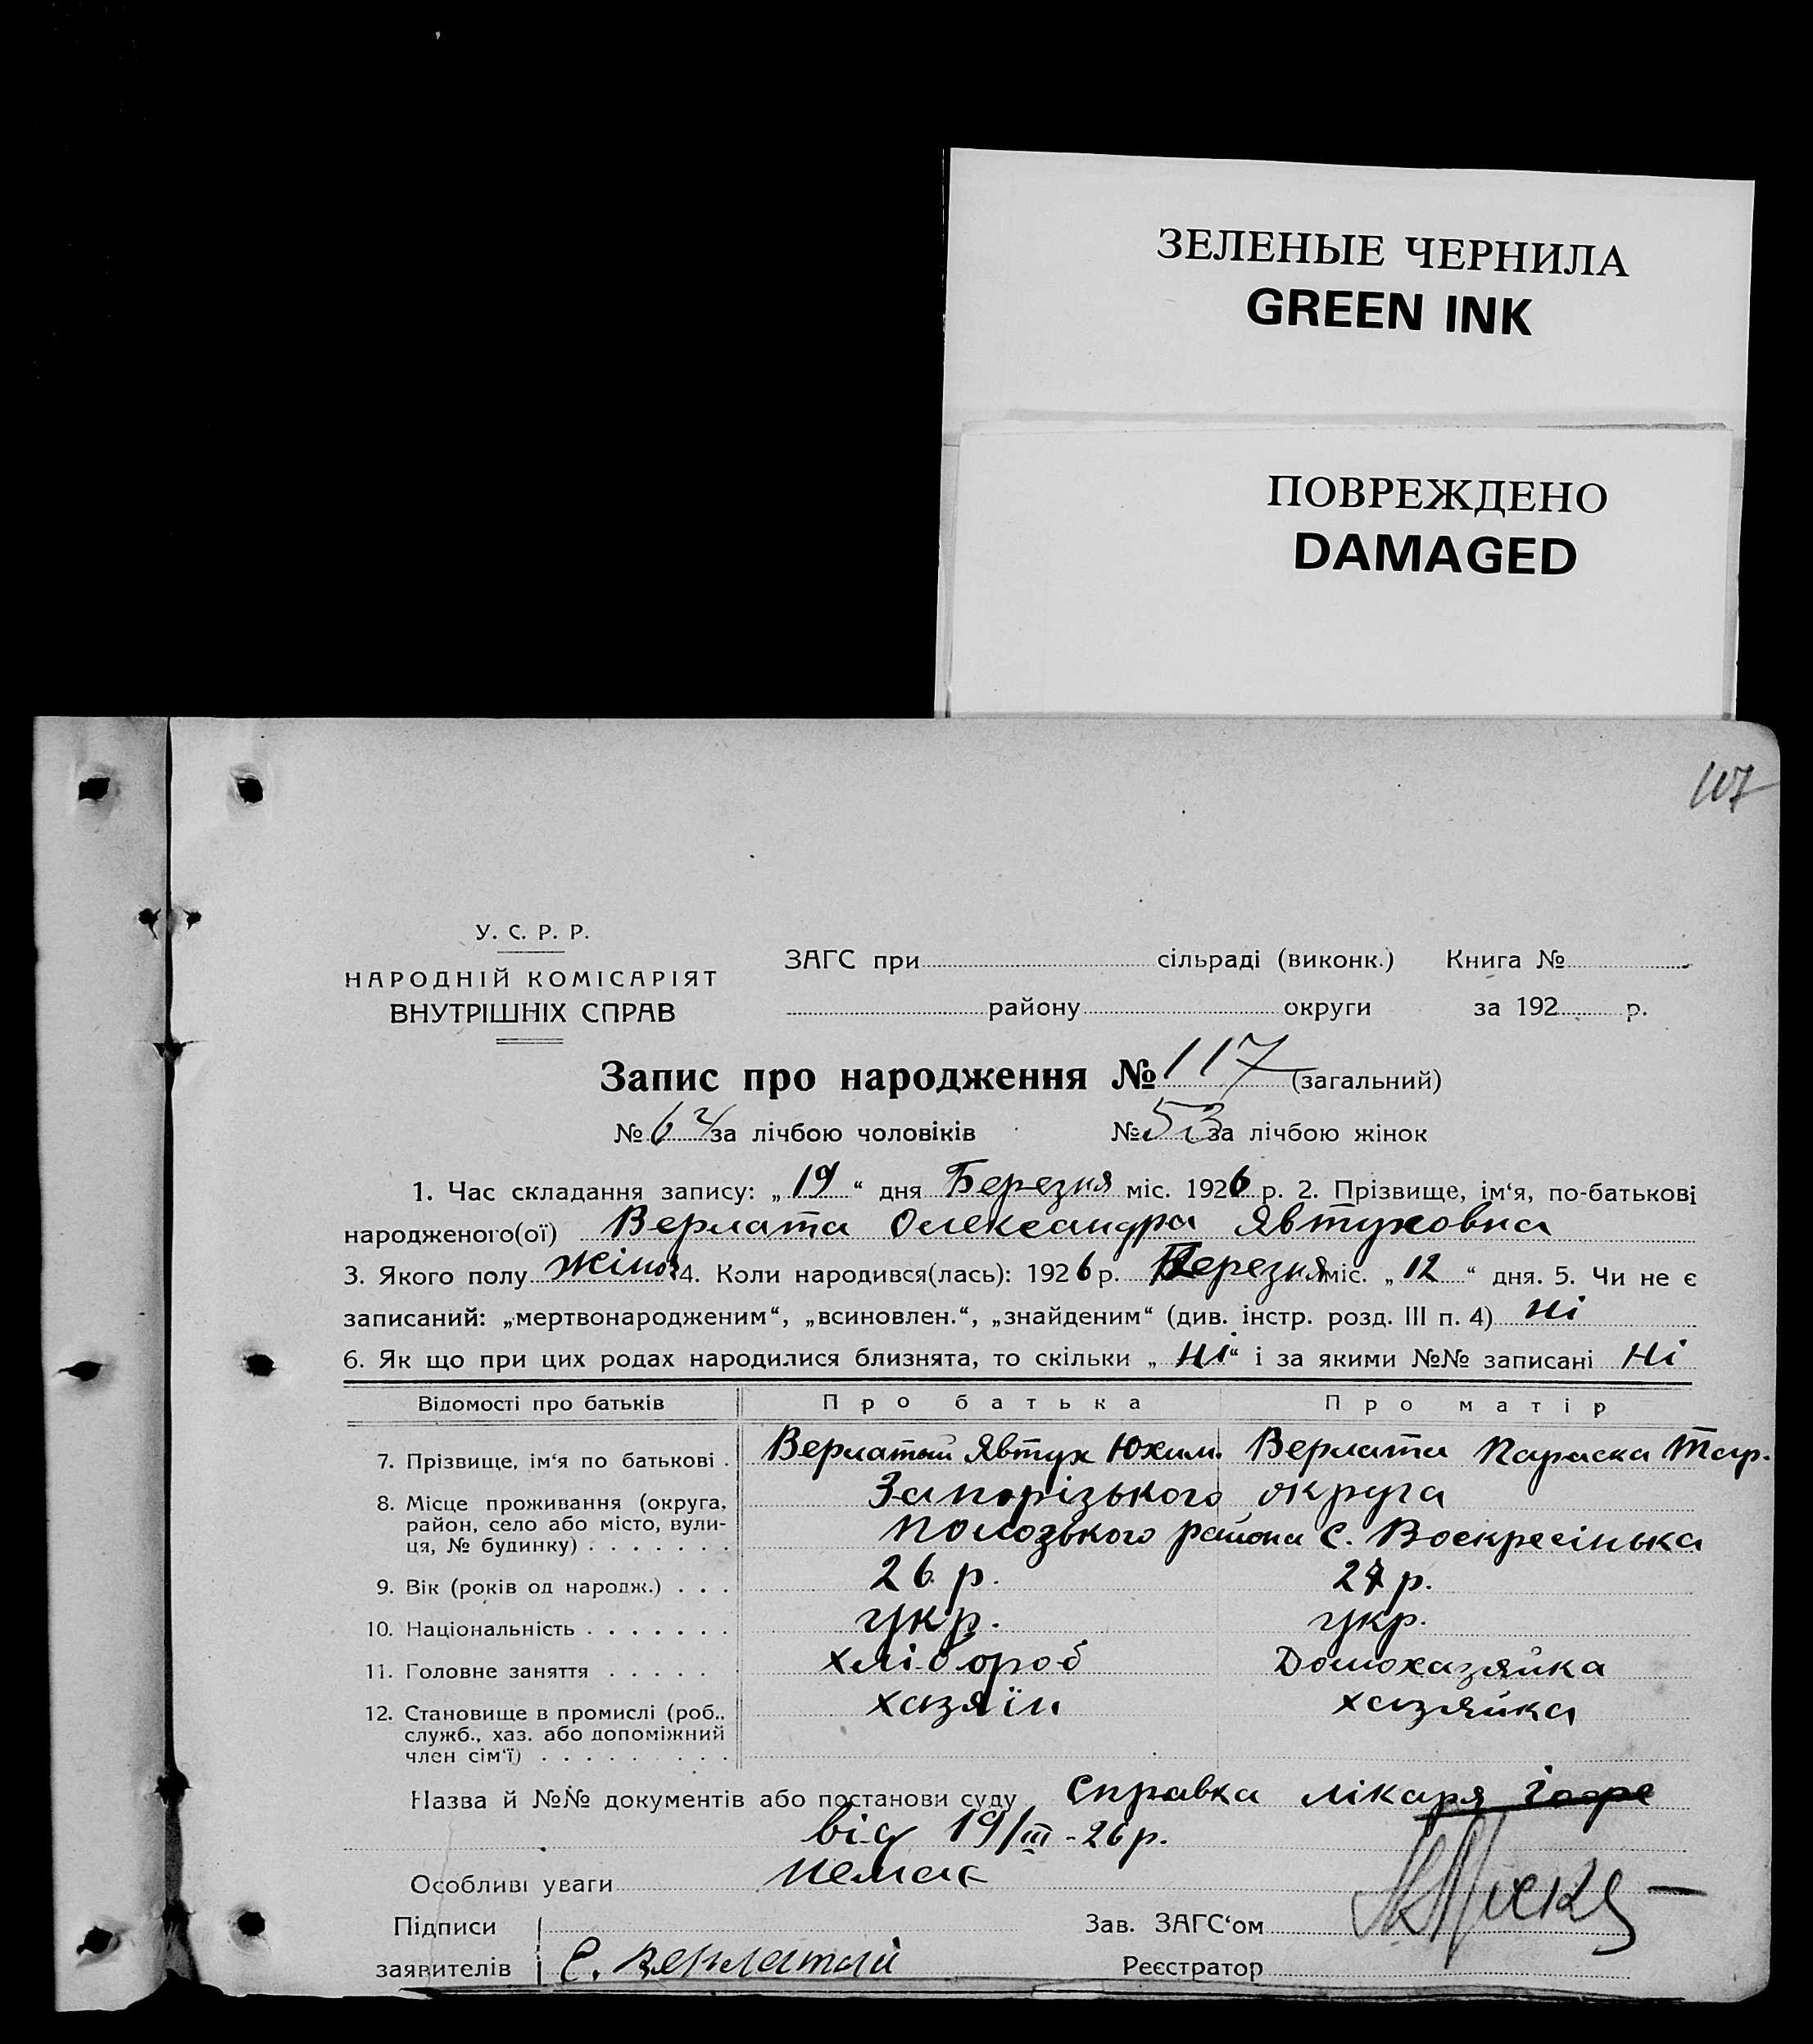 ЗЕЛЕНЫЕ ЧЕРНИЛА
GREEN INK
ПОВРЕЖДЕНО
DAMAGED
107
У. С. Р. Р.
НАРОДНІЙ КОМІСАРІЯТ
ВНУТРІШНІХ СПРАВ
ЗАГС при сільраді (виконк.) Книга №
району округи за 192 р.
Запис про народження № 117 (загальний)
№ 64 за лічбою чоловіків № 53 за лічбою жінок
1. Час складання запису: „19“ дня Березня міс. 1926 р. 2. Прізвище, ім‘я, по-батькові
народженого(ої) Верлата Олександра Явтуховна
3. Якого полу жіноч 4. Коли народився(лась): 1926 р. Березня міс. „12“ дня. 5. Чи не є
записаний: „мертвонародженим“, „всиновлен.“, „знайденим“ (див. інстр. розд. III п. 4) Ні
6. Як що при цих родах народилися близнята, то скільки „Ні“ і за якими №№ записані Ні
Відомості про батьків Про батька Про матір
7. Прізвище, ім‘я по батькові . Верлатый Явтух Юхим. Верлата Параска Тар.
8. Місце проживання (округа, Запорізького округа
район, село або місто, вули-
ця, № будинку) . . . . . . . Пологзького района с. Воскресінька
9. Вік (років од народж.) . . . 26 р. 27 р.
10. Національність . . . . . . . укр. укр.
11. Головне заняття . . . . . . хлібороб Домохазяйка
12. Становище в промислі (роб., хазяїн хазяйка
служб., хаз. або допоміжний
член сім‘ї) . . . . . . . . .
Назва й №№ документів або постанови суду Справка лікаря
від 19/III-26р.
Особливі уваги немає
Підписи Зав. ЗАГС‘ом
заявителів Є. Верлатий Реєстратор